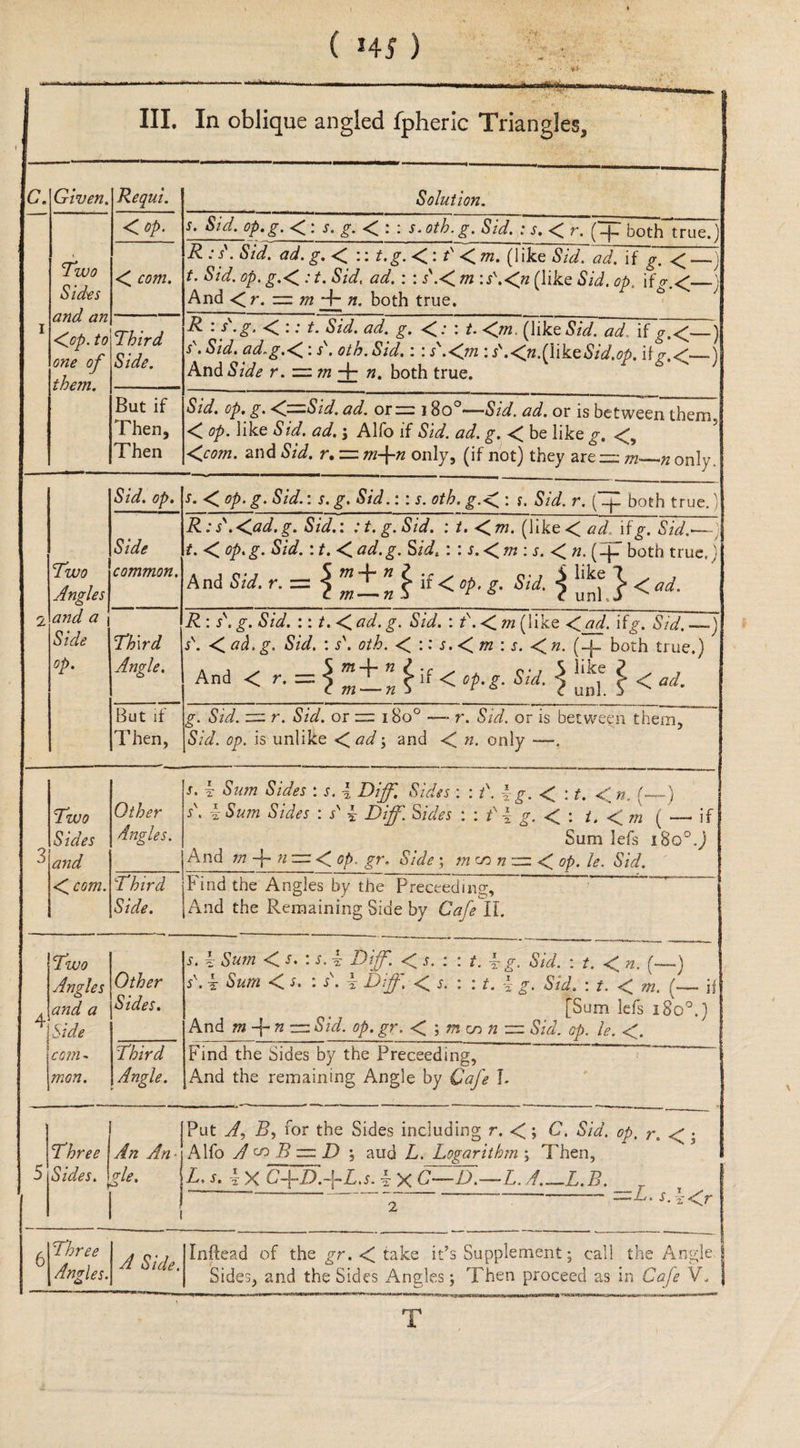 ( 145 )
III. In oblique angled ſpheric Triangles,
C. Given. Requi. Solution.
1 Two Sides and an <op. to one of them.
< op.
s. Sid. op. g. <: s. g. < : : s. oth. g. Sid. : s. < r. (-+- both true.)
< com.
R : s'. Sid. ad. g. < :: t. g. <: t' < m. (like Sid. ad. if g. <—)
t. Sid. op. g. < : t. Sid. ad. : : s'. < m : s'. <n (like Sid. op. if g. <—)
And < r. = m + n. both true.
Third Side.
R : s'. g. < :: t. Sid. ad. g. <: : t. <m. (like Sid. ad. if g. <—)
s'. Sid. ad. g. <: s'. oth. Sid. : : s'. <m : s'. <n. (like Sid. op. if g. <—)
And Side r. = m + n. both true.
But if Then, Then
Sid. op. g. <=Sid. ad. or = 180°—Sid. ad. or is between them,
< op. like Sid. ad. ; Alſo if Sid. ad. g. < be like g. <,
<com. and Sid. r. = m+n only, (if not) they are = m—n only.
2 Two Angles and a Side op.
Sid. op.
s. < op. g. Sid. : s. g. Sid. : : s. oth. g. < : s. Sid. r. (-+- both true.)
Side common.
R : s'. <ad. g. Sid. : : t. g. Sid. : t. <m. (like < ad. if g. Sid.—)
t. < op. g. Sid. : t. < ad. g. Sid. : : s. < m : s. < n. (-+- both true.)
And Sid. r. = { m + n / m — n } if < op. g. Sid. { like / unl. } < ad.
Third Angle.
R : s'. g. Sid. : : t. < ad. g. Sid. : t'. < m (like < ad. if g. Sid.—)
s'. < ad. g. Sid. : s'. oth. < : : s. < m : s. < n. (-+- both true.)
And < r. = { m + n / m — n } if < op. g. Sid. { like / unl. } < ad.
But if Then,
g. Sid. = r. Sid. or = 180° — r. Sid. or is between them,
Sid. op. is unlike < ad ; and < n. only —.
3 Two Sides and < com.
Other Angles.
s. ½ Sum Sides : s. ½ Diff. Sides : : t'. ½ g. < : t. < n. (—)
s'. ½ Sum Sides : s' ½ Diff. Sides : : t' ½ g. < : t. < m ( — if
Sum leſs 180°.)
And m + n = < op. gr. Side ; m ∽ n = < op. le. Sid.
Third Side.
Find the Angles by the Preceeding,
And the Remaining Side by Caſe II.
4 Two Angles and a Side com- mon.
Other Sides.
s. ½ Sum < s. : s. ½ Diff. < s. : : t. ½ g. Sid. : t. < n. (—)
s'. ½ Sum < s. : s'. ½ Diff. < s. : : t. ½ g. Sid. : t. < m. (— if
[Sum leſs 180°.)
And m + n = Sid. op. gr. < ; m ∽ n = Sid. op. le. <.
Third Angle.
Find the Sides by the Preceeding,
And the remaining Angle by Caſe I.
5 Three Sides.
An An- gle.
Put A, B, for the Sides including r. < ; C. Sid. op. r. < ;
Alſo A ∽ B = D ; aud L. Logarithm ; Then,
L. s. ½ × C+D.+L.s. ½ × C—D.—L. A.—L. B.
2
=L. s. ½<r
6 Three Angles.
A Side.
Inſtead of the gr. < take it's Supplement ; call the Angle
Sides, and the Sides Angles ; Then proceed as in Caſe V.
T